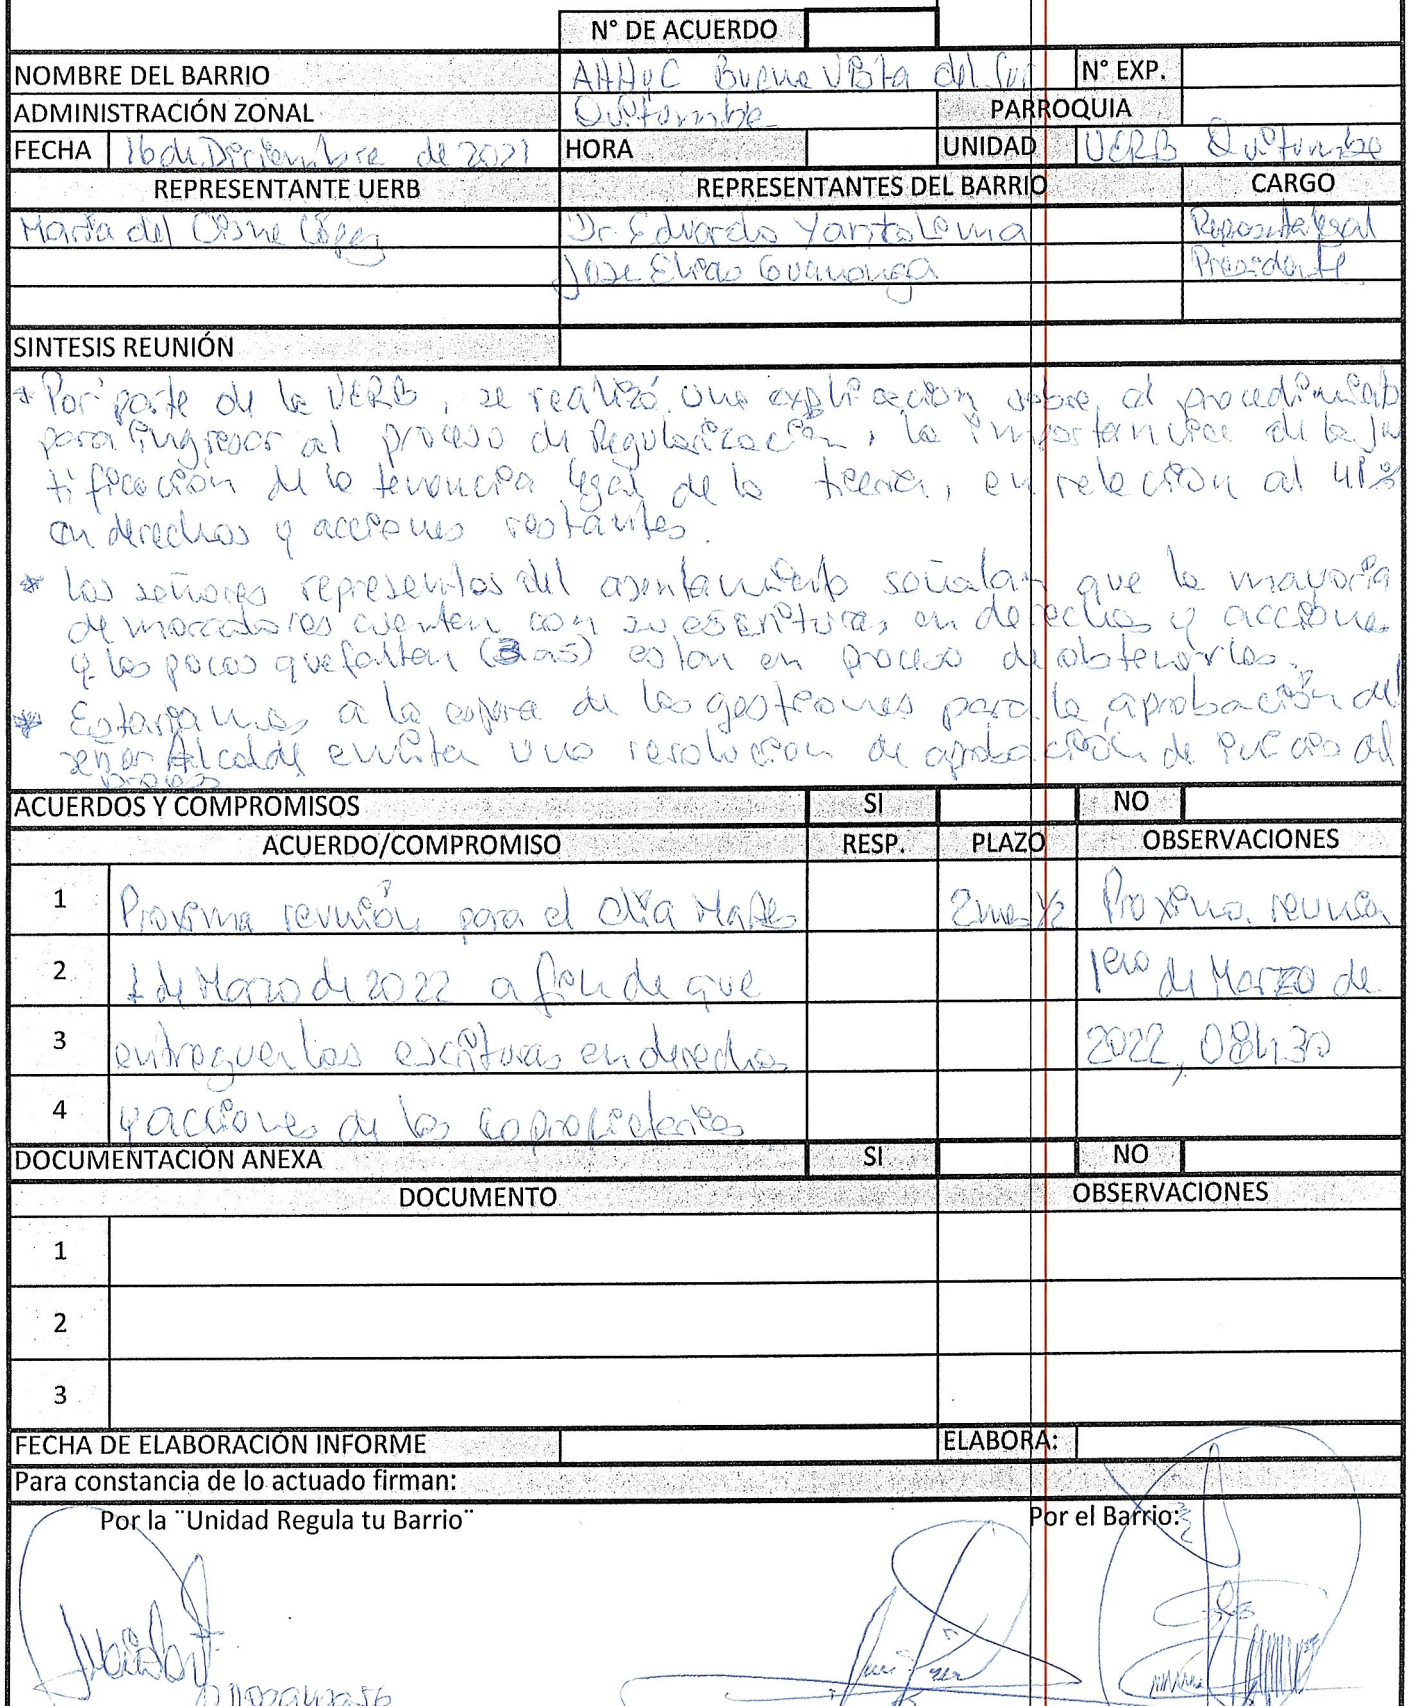 N° DE ACUERDO
NOMBRE DEL BARRIO AHHyC Buena Vista del Sur N° EXP.
ADMINISTRACIÓN ZONAL Quitumbe PARROQUIA
FECHA 16 de Diciembre de 2021 HORA UNIDAD UERB Quitumbe
REPRESENTANTE UERB REPRESENTANTES DEL BARRIO CARGO
María del Cisne López Dr. Eduardo Yantalema
Jose Elias Guananga Presidente
SINTESIS REUNIÓN
* Por parte de la UERB, se realizó una explicación sobre el procedimiento
para ingresar al proceso de Regularización, la importancia de la jus
tificación de la tenencia legal de la tierra, en relación al 41%
en derechos y acciones restantes.
* Los señores representes del asentamiento señalan que la mayoría
de moradores cuenten con su escrituras en derechos y acciones
y los pocos que faltan estan en proceso de obtenerlas.
* Estaríamos a la espera de las gestiones para la aprobación del
señor Alcalde emita una resolución de aprobación de inicio al
proceso
ACUERDOS Y COMPROMISOS SI NO
ACUERDO/COMPROMISO RESP. PLAZO OBSERVACIONES
1 Proxima reunión para el día Martes 2 mes 1/2 Proxima reunión
2 1 de Marzo de 2022 a fin de que 1ero de Marzo de
3 entreguen las escrituras en derechos 2022, 08h30
4 y acciones de los copropietarios
DOCUMENTACIÓN ANEXA SI NO
DOCUMENTO OBSERVACIONES
1
2
3
FECHA DE ELABORACIÓN INFORME ELABORA:
Para constancia de lo actuado firman:
Por la ¨Unidad Regula tu Barrio¨ Por el Barrio: